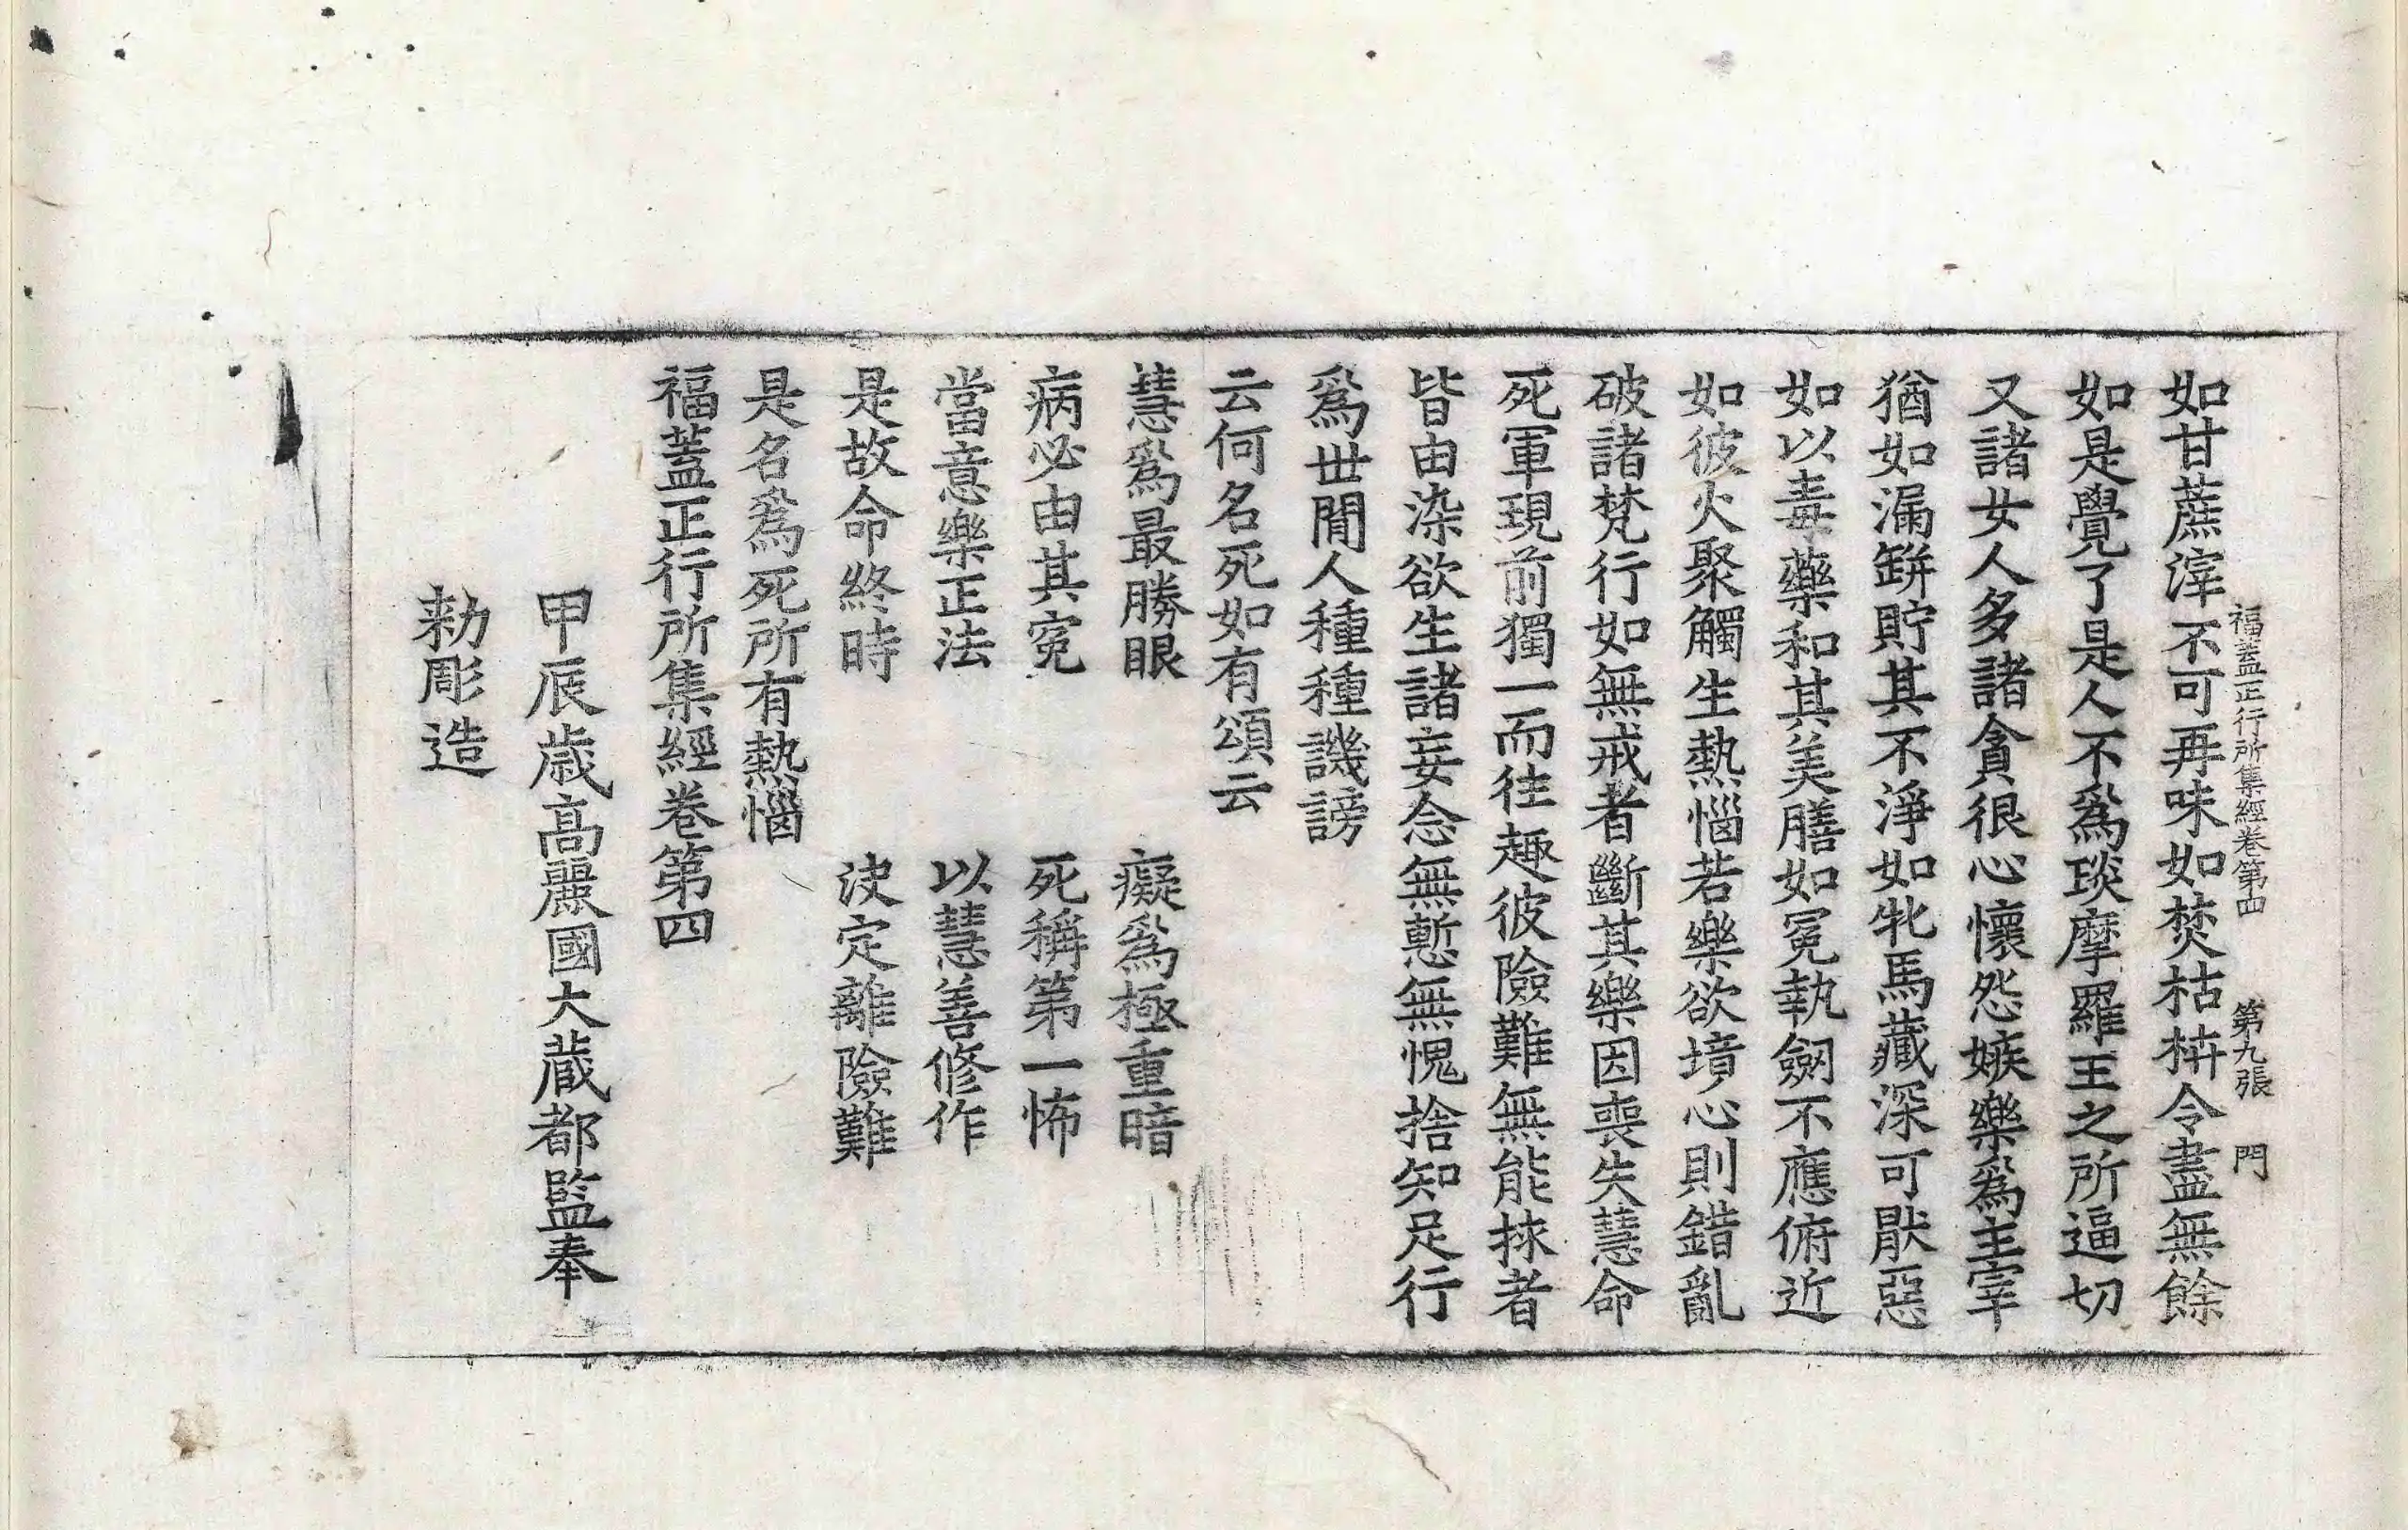 福蓋正行所集經卷第四 第九張 門
如甘蔗滓不可再味如焚枯枿令盡無餘
如是覺了是人不爲琰摩羅王之所逼切
又諸女人多諸貪很心懷怨嫉樂爲主宰
猶如漏缾貯其不淨如牝馬藏深可猒惡
如以毒藥和其美膳如冤執劒不應俯近
如彼火聚觸生熱惱若樂欲境心則錯亂
破諸梵行如無戒者斷其樂因喪失慧命
死軍現前獨一而往趣彼險難無能捄者
皆由染欲生諸妄念無慙無愧捨知足行
爲世閒人種種譏謗
云何名死如有頌云
慧爲最勝眼 癡爲極重暗
病必由其冤 死稱第一怖
當意樂正法 以慧善修作
是故命終時 決定離險難
是名爲死所有熱惱
福蓋正行所集經卷第四
甲辰歲高麗國大藏都監奉
勅彫造